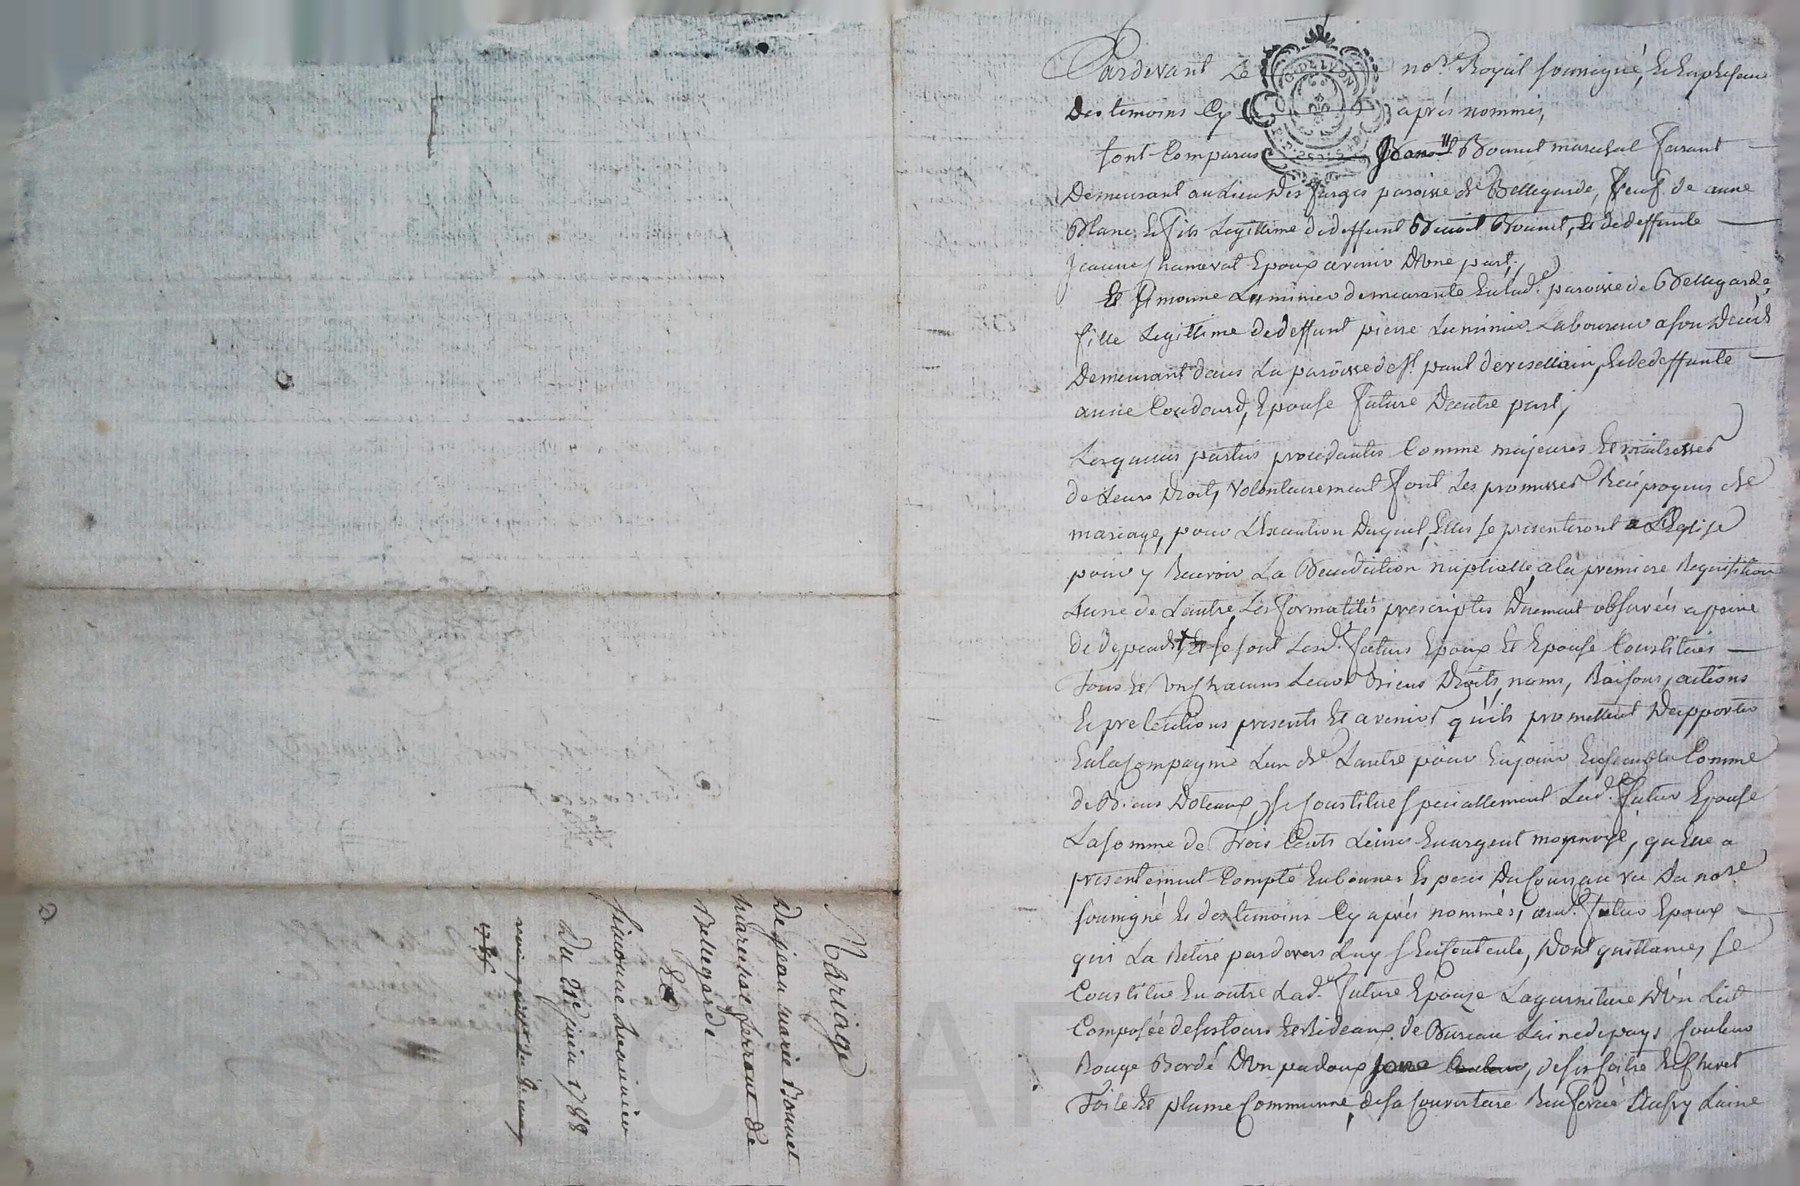 Mariage
De jean marie Bonnet
marechal ferrant de
Bellegarde
Et
Simonne Luminier
Du juin 1788
Pardevant Le no.re Royal soussigné, et En presence
Des temoins Cy après nommés,
sont Comparus Bonnet marechal ferant
Demeurant au Lieu des farges paroisse de Bellegarde, veuf de anne
Blanc, et fils Legitime de deffunt Benoit Bonnet, et de deffunte
jeanne Epoux avenir D'Une part,
Et Simonne Luminier demeurante En lad.e paroisse de Bellegarde,
fille Legitime de deffunt pierre Luminier Laboureur a son Décés
Demeurant dans La paroisse de S.t paul de vesellain, et de deffunte
anne Coudourd, Epouse future D'autre part,
Lesquelles parties procedantes Comme majeures et maitresses
de Leurs Droits, volontairement font Les promesses Réciproques de
mariage, pour L'Execution Duquel, Elles se presenteront a L'Eglise
pour y Recevoir La Benediction nuptialle, a la premiere Requisition
L'une de L'autre, Les formalités prescriptes Duement observées a peine
de depends, Et se sont Lesd. futurs Epoux Et Epouse Constitués
Tous et Un chacuns Leurs Biens Droits, noms, Raisons, actions
Et pretentions presents Et avenirs qu'ils promettent D'apporter
En la Compagnie L'un de L'autre pour En jouir Ensemble Comme
de Biens Dotaux, se Constitue speciallement Lad. future Epouse
La somme de Trois Cents Livres En argent monnoyé, qu'Elle a
presentement Compté En bonnes Especes Du Cours au vu Du no.re
soussigné Et des temoins Cy après nommés, aud. futur Epoux
qui La Retiré pardevers Luy s'En Contente, Dont quittance, se
Constitue En outre Lad.e future Epouze La garniture D'Un Lict
Composée de ses tours Et Rideaux de Bureau Laine de pays Couleur
Rouge Bordé D'Un padoux jaune, de son Coitre Et Chevet
Toile Et plume Commune, de sa Couverture Laine